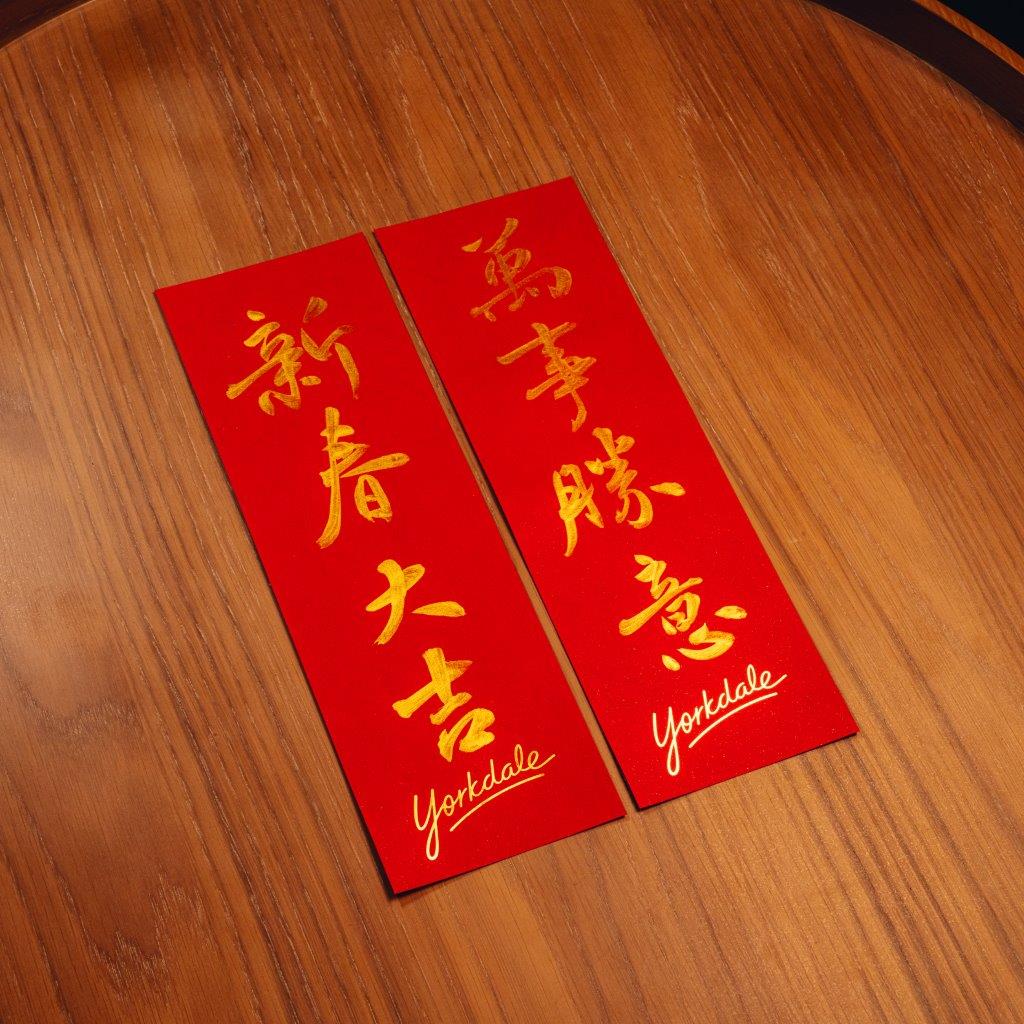 新春大吉
Yorkdale
萬事勝意
Yorkdale